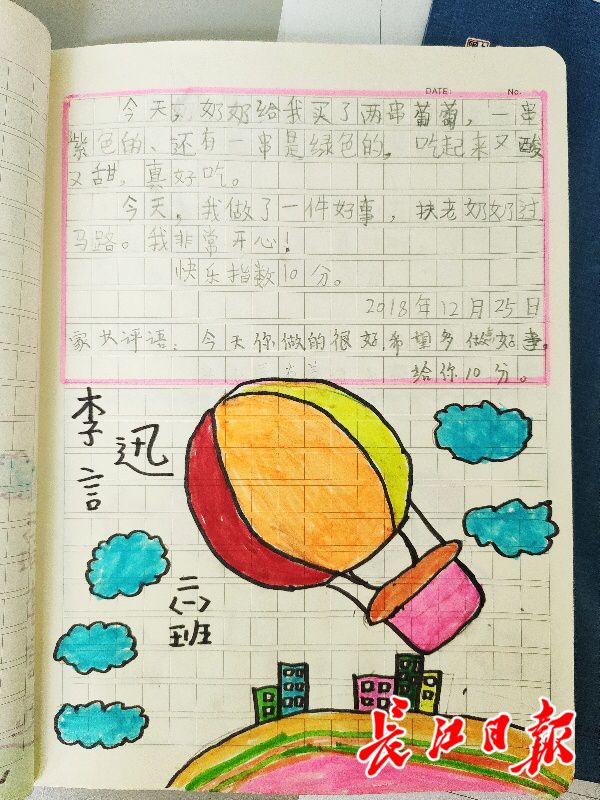 DATE: No.
今天,奶奶给我买了两串葡萄,一串
紫色的、还有一串是绿色的,吃起来又酸
又甜,真好吃。
今天,我做了一件好事,扶老奶奶过
马路。我非常开心!
快乐指数10分。
2018年12月25日
家长评语:今天你做的很好,希望多做好事。
给你10分。
李言
迅
二(一)班
长江日报